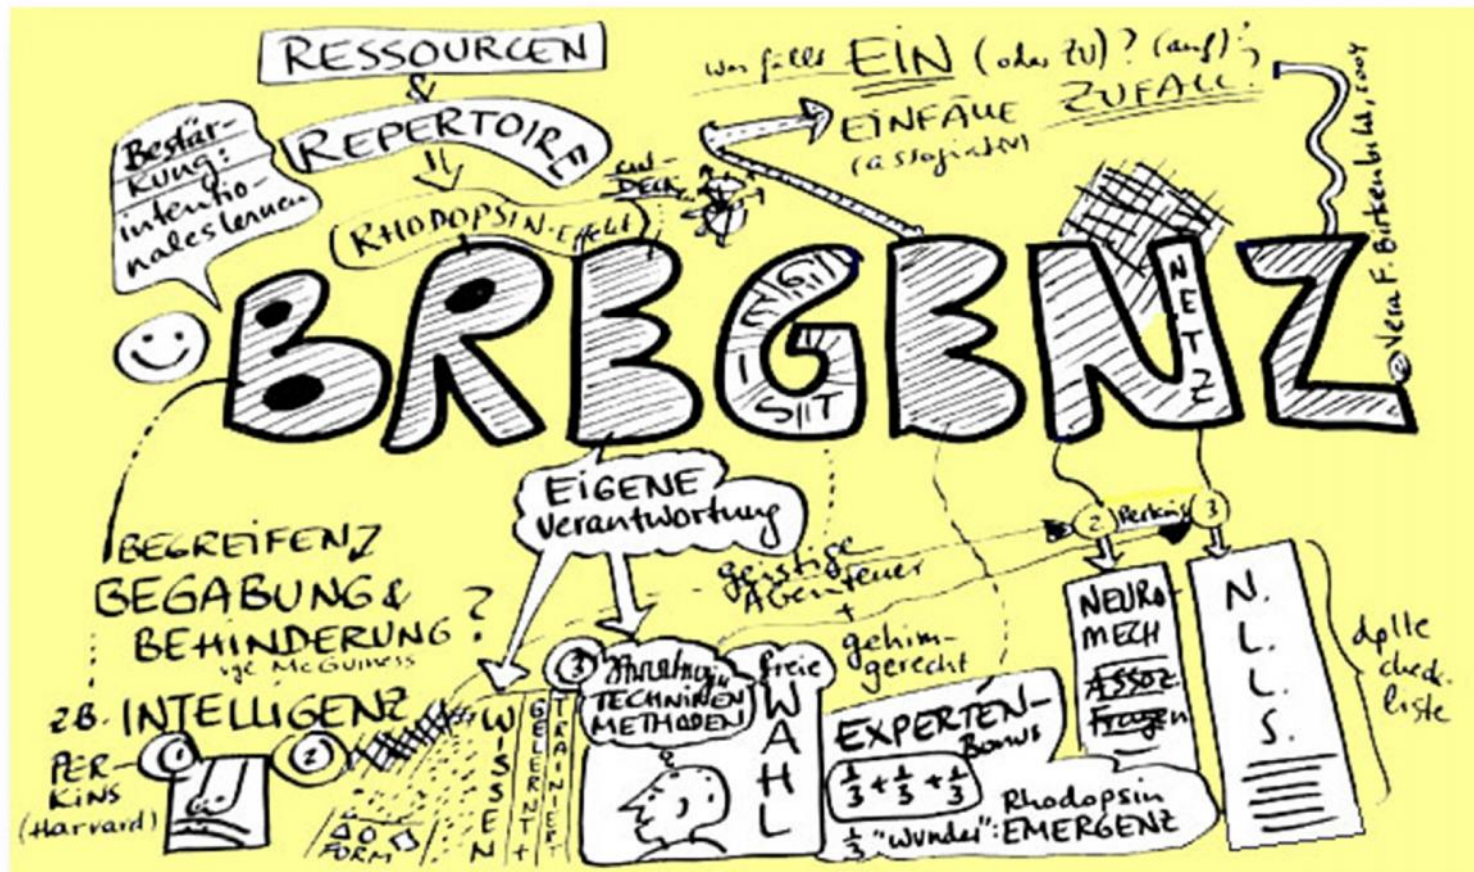 RESSOURCEN
&
REPERTOIRE
Bestär-
kung:
intentio-
nales lernen
RHODOPSIN-Effekt
ent-
DECK
Was fällt EIN (oder zu)? (auf)?
ZUFALL?
EINFÄLLE
(assoziativ)
BREGENZ
GEIST
NETZ
© Vera F. Birkenbihl, 2004
EIGENE
Verantwortung
BEGREIFENZ
BEGABUNG &
BEHINDERUNG?
vgl. McGuiness
z.B. INTELLIGENZ
PER-
KINS
(Harvard)
1
2
FORM
WISSEN
GELERNT +
TRAINIERT
3
TECHNIKEN
METHODEN
freie
WAHL
geistige
Abenteuer
+
gehirn-
gerecht
EXPERTEN-
Bonus
1/3 + 1/3 + 1/3
Rhodopsin
1/3 "wunder": EMERGENZ
2 Perkins 3
NEURO
MECH
Assoz.
Fragen
N.
L.
L.
S.
check-
liste